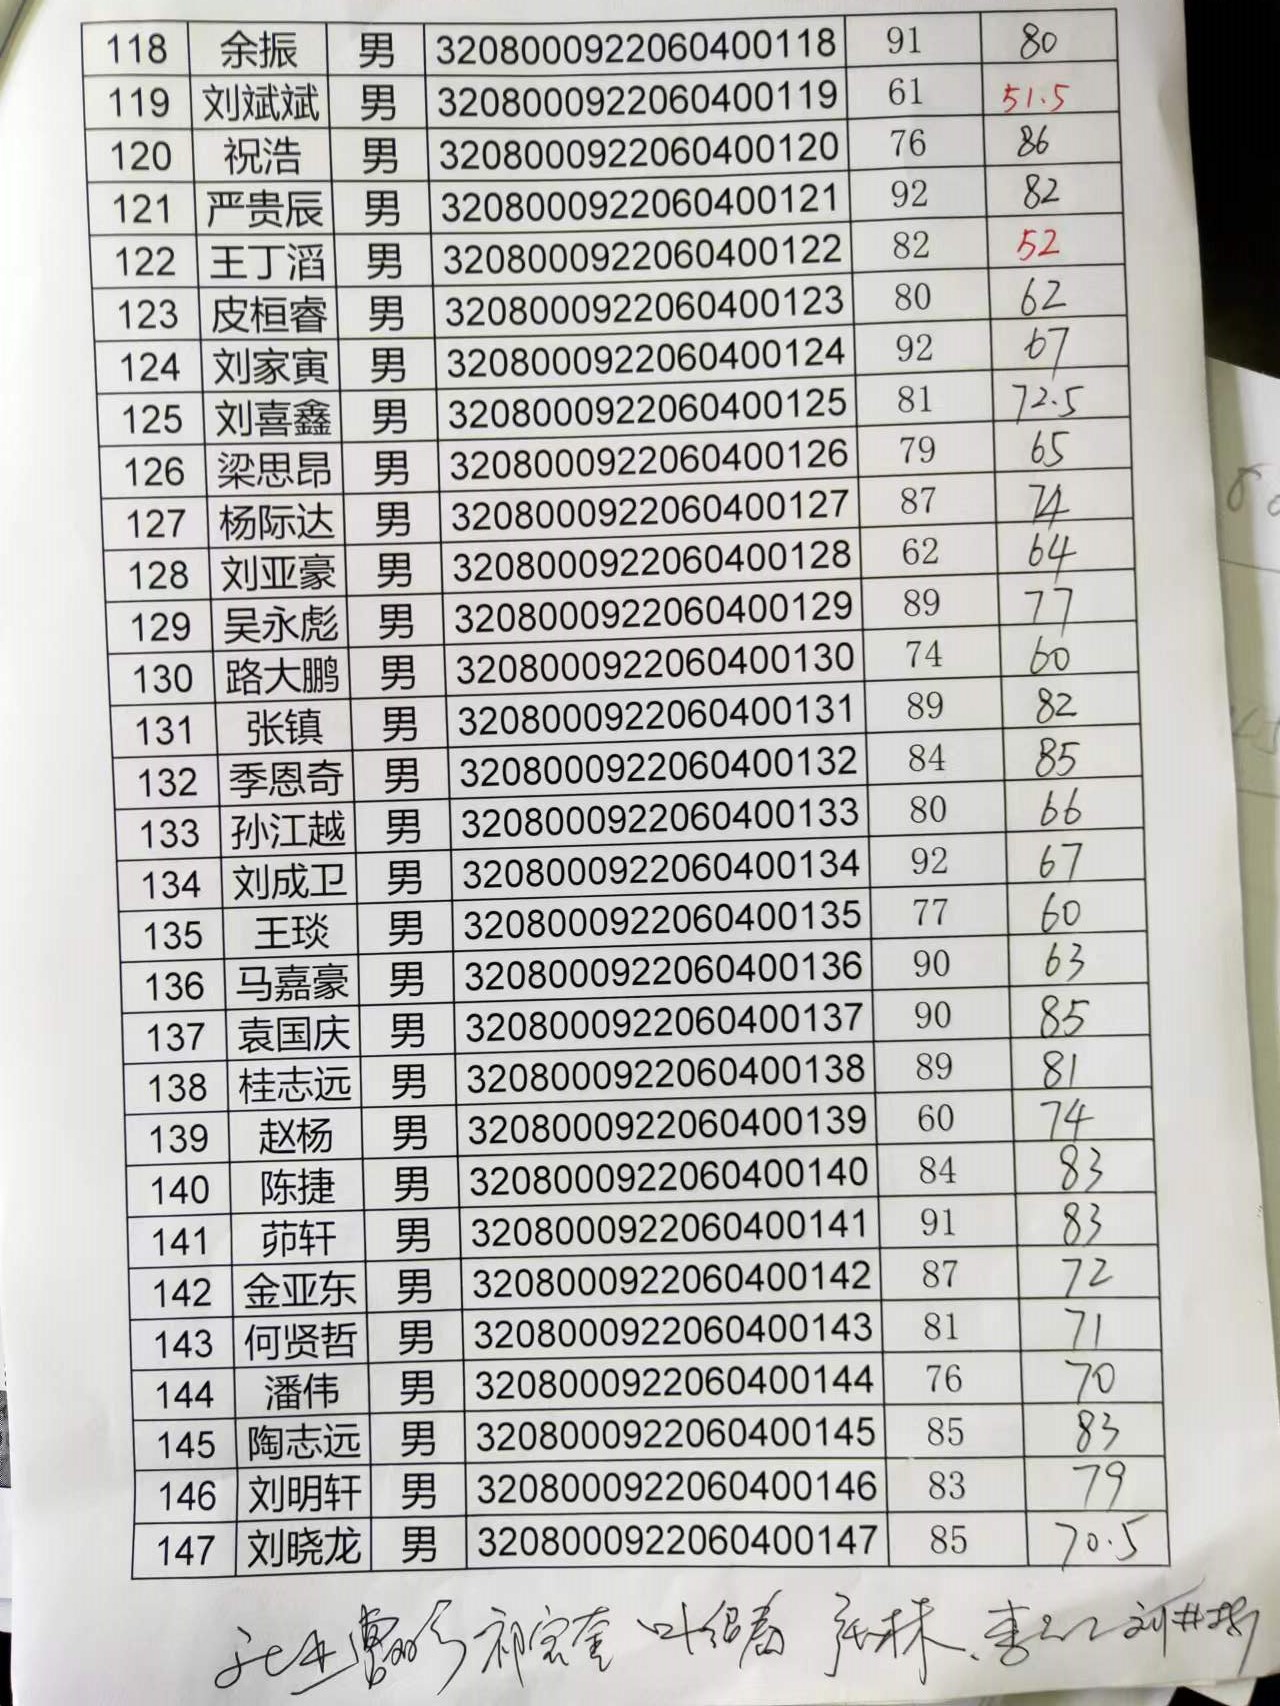 118 余振 男 3208000922060400118 91 80
119 刘斌斌 男 3208000922060400119 61 51.5
120 祝浩 男 3208000922060400120 76 86
121 严贵辰 男 3208000922060400121 92 82
122 王丁滔 男 3208000922060400122 82 52
123 皮桓睿 男 3208000922060400123 80 62
124 刘家寅 男 3208000922060400124 92 67
125 刘喜鑫 男 3208000922060400125 81 72.5
126 梁思昂 男 3208000922060400126 79 65
127 杨际达 男 3208000922060400127 87 74
128 刘亚豪 男 3208000922060400128 62 64
129 吴永彪 男 3208000922060400129 89 77
130 路大鹏 男 3208000922060400130 74 60
131 张镇 男 3208000922060400131 89 82
132 季恩奇 男 3208000922060400132 84 85
133 孙江越 男 3208000922060400133 80 66
134 刘成卫 男 3208000922060400134 92 67
135 王琰 男 3208000922060400135 77 60
136 马嘉豪 男 3208000922060400136 90 63
137 袁国庆 男 3208000922060400137 90 85
138 桂志远 男 3208000922060400138 89 81
139 赵杨 男 3208000922060400139 60 74
140 陈捷 男 3208000922060400140 84 83
141 茆轩 男 3208000922060400141 91 83
142 金亚东 男 3208000922060400142 87 72
143 何贤哲 男 3208000922060400143 81 71
144 潘伟 男 3208000922060400144 76 70
145 陶志远 男 3208000922060400145 85 83
146 刘明轩 男 3208000922060400146 83 79
147 刘晓龙 男 3208000922060400147 85 70.5
祁宏奎